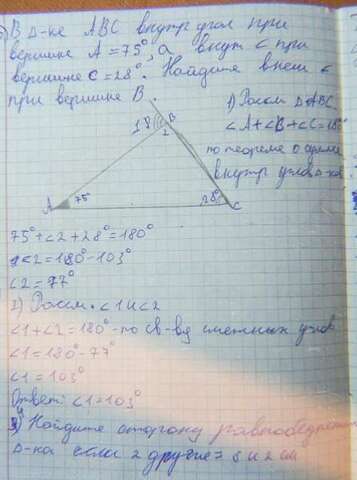 В Δ-ке ABC внутр угол при
вершине A = 75°, а внут ∠ при
вершине C = 28°. Найдите внеш ∠
при вершине B.
1) Рассм. ΔABC
∠A+∠B+∠C=180°
по теореме о сумме
внутр углов Δ-ка
1 B
2
A 75° 28° C
75°+∠2+28°=180°
∠2=180°-103°
∠2=77°
2) Рассм. ∠1 и ∠2
∠1+∠2=180°-по св-ву смежных углов
∠1=180°-77°
∠1=103°
Ответ: ∠1=103°
Найдите сторону равнобедрен
Δ-ка если 2 другие = 8 и 2 см